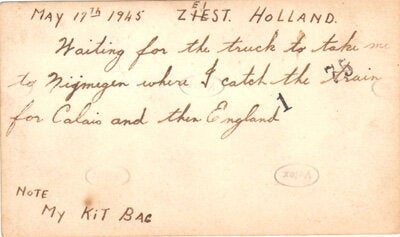 MAY 17th 1945 ZEIEST. HOLLAND.
Waiting for the truck to take me
to Nijmegen where I catch the train
for Calais and then England
1
75
Velox
NOTE
MY KIT BAG